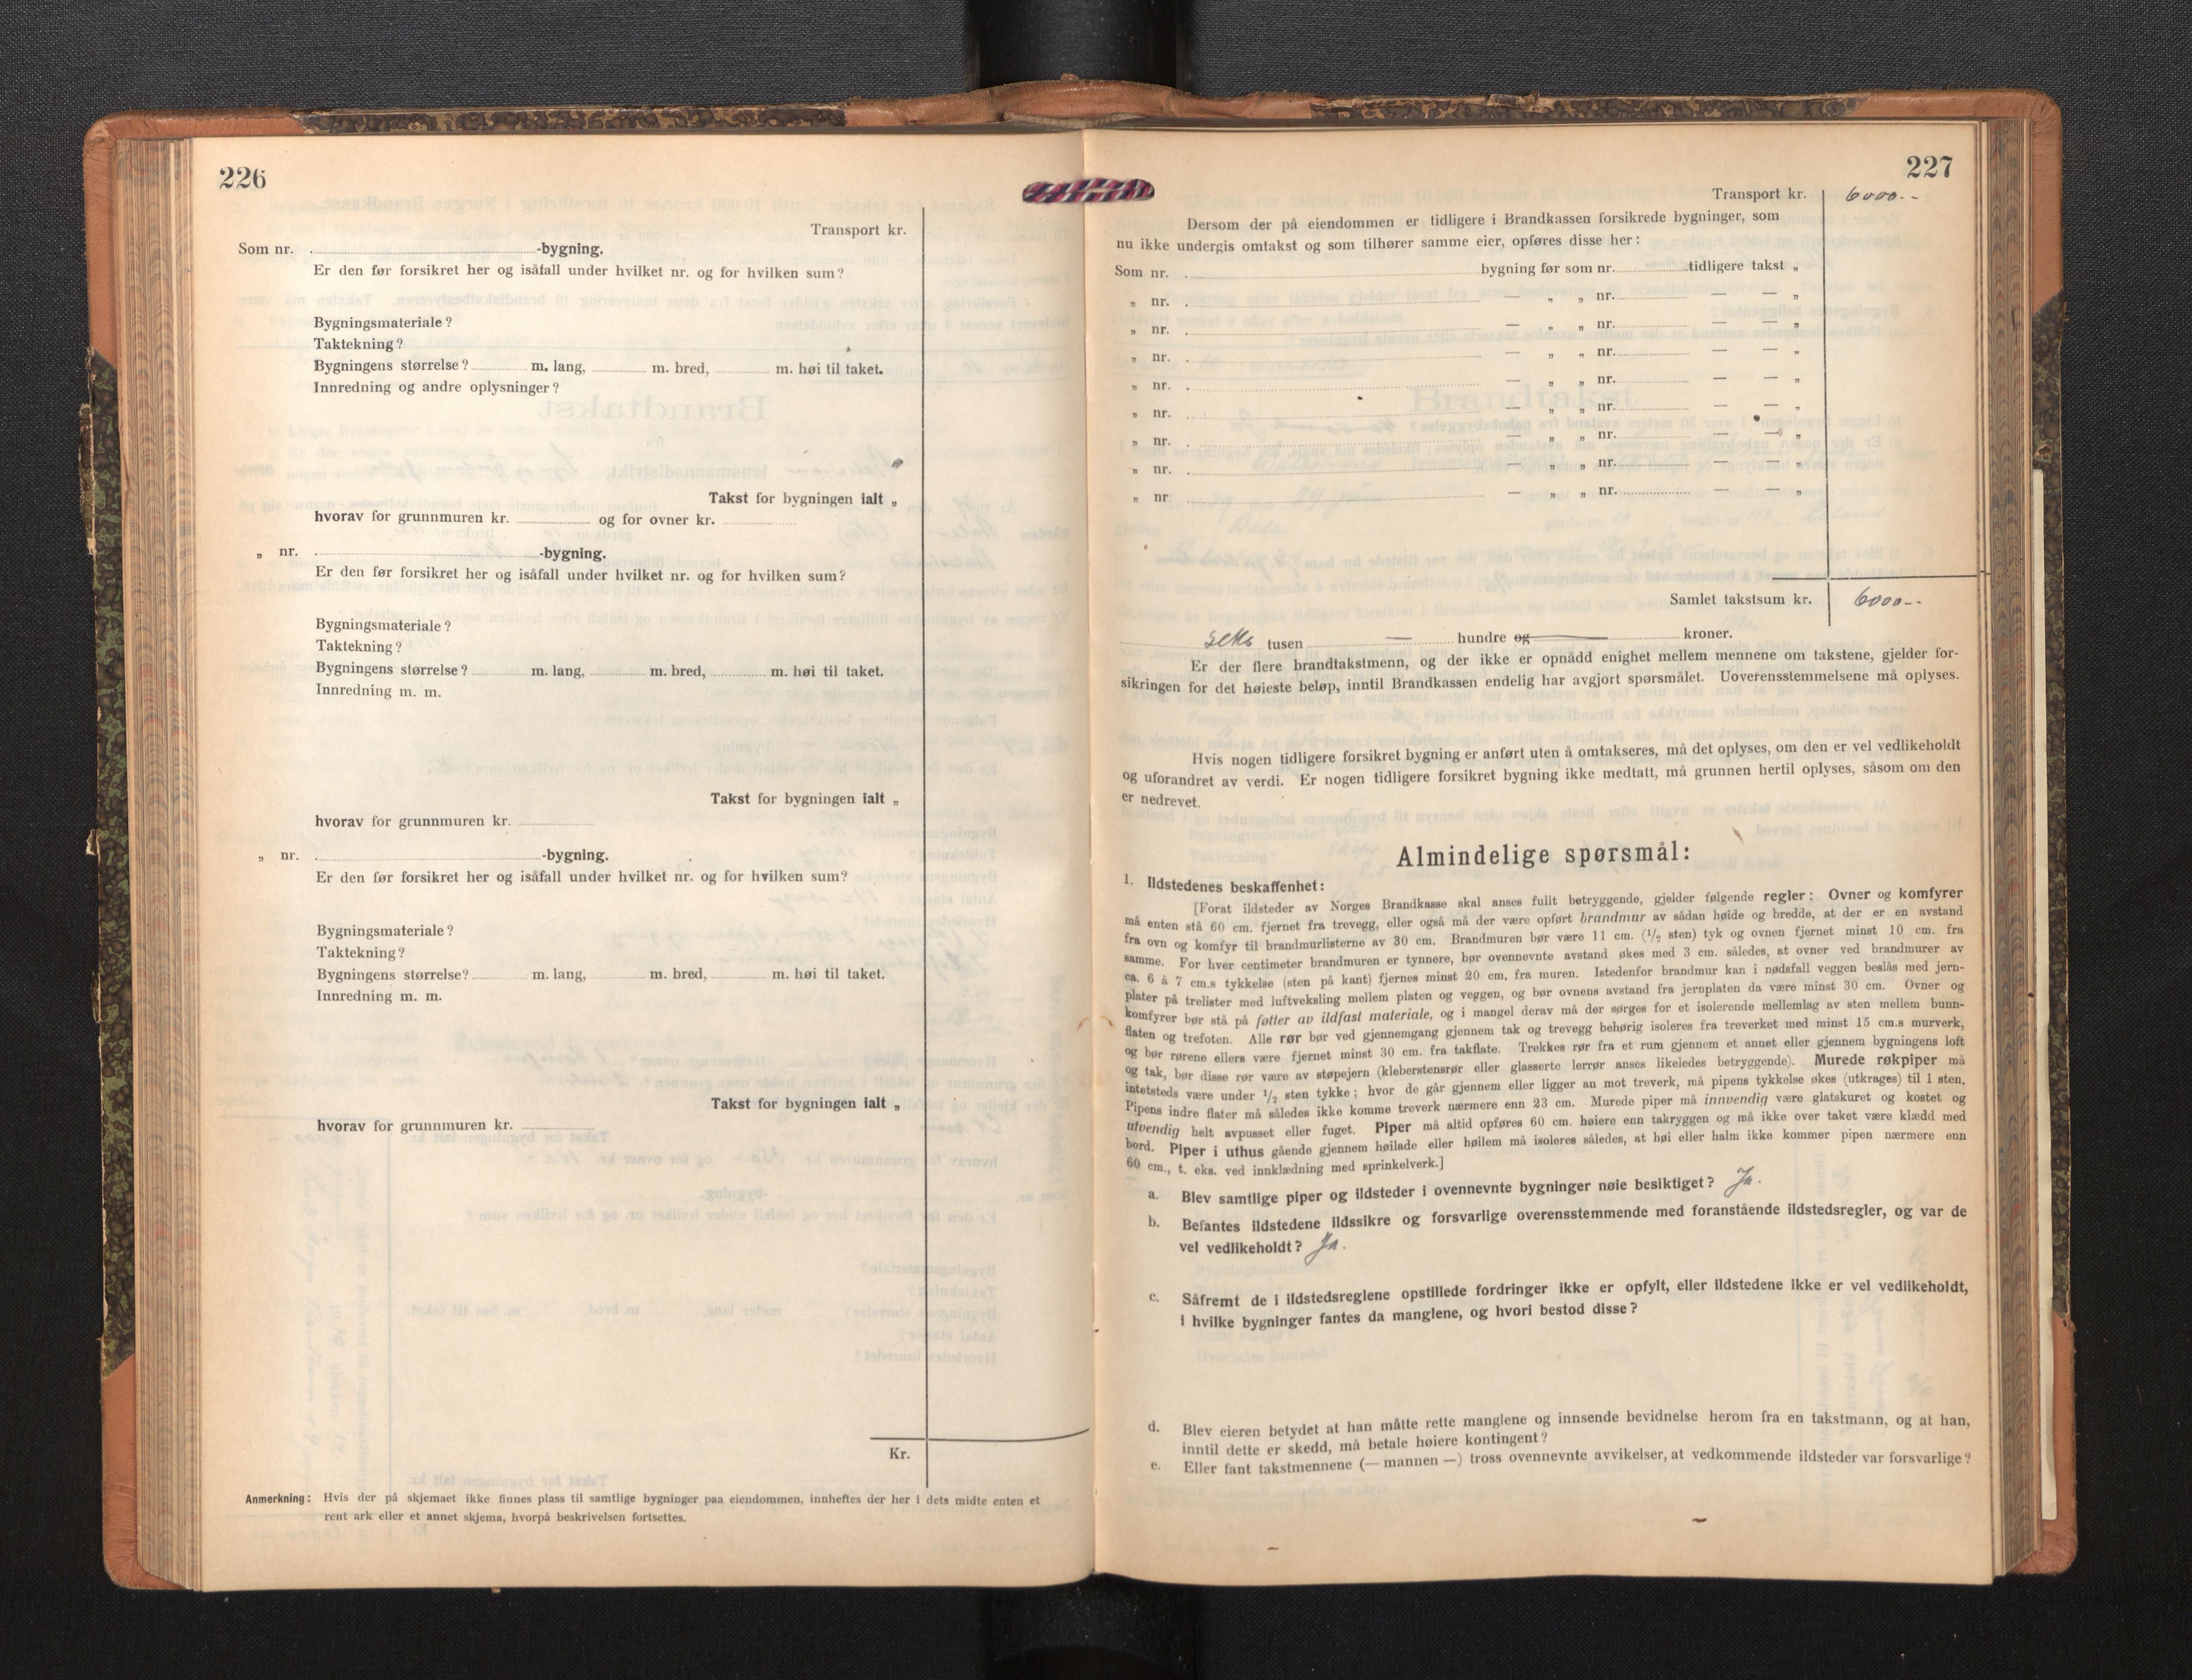 226
Transport kr.
Som nr. -bygning.
Er den før forsikret her og isåfall under hvilket nr. og for hvilken sum?
Bygningsmateriale?
Taktekning?
Bygningens størrelse? m. lang, m. bred, m. høi til taket.
Innredning og andre oplysninger?
Takst for bygningen ialt „
hvorav for grunnmuren kr. og for ovner kr.
„ nr. -bygning.
Er den før forsikret her og isåfall under hvilket nr. og for hvilken sum?
Bygningsmateriale?
Taktekning?
Bygningens størrelse? m. lang, m. bred, m. høi til taket.
Innredning m. m.
Takst for bygningen ialt „
hvorav for grunnmuren kr.
„ nr. -bygning.
Er den før forsikret her og isåfall under hvilket nr. og for hvilken sum?
Bygningsmateriale?
Taktekning?
Bygningens størrelse? m. lang, m. bred, m. høi til taket.
Innredning m. m.
Takst for bygningen ialt „
hvorav for grunnmuren kr.
Kr.
Anmerkning: Hvis der på skjemaet ikke finnes plass til samtlige bygninger paa eiendommen, innheftes der her i dets midte enten et
rent ark eller et annet skjema, hvorpå beskrivelsen fortsettes.
227
Transport kr. 6000.--
Dersom der på eiendommen er tidligere i Brandkassen forsikrede bygninger, som
nu ikke undergis omtakst og som tilhører samme eier, opføres disse her:
Som nr. bygning før som nr. tidligere takst „
„ nr. — „ „ nr. — — „
„ nr. — „ „ nr. — — „
„ nr. — „ „ nr. — — „
„ nr. — „ „ nr. — — „
„ nr. — „ „ nr. — — „
„ nr. — „ „ nr. — — „
„ nr. — „ „ nr. — — „
„ nr — „ „ nr. — — „
Samlet takstsum kr. 6000--
seks tusen — hundre og kroner.
Er der flere brandtakstmenn, og der ikke er opnådd enighet mellem mennene om takstene, gjelder for-
sikringen for det høieste beløp, inntil Brandkassen endelig har avgjort spørsmålet. Uoverensstemmelsene må oplyses.
Hvis nogen tidligere forsikret bygning er anført uten å omtakseres, må det oplyses, om den er vel vedlikeholdt
og uforandret av verdi. Er nogen tidligere forsikret bygning ikke medtatt, må grunnen hertil oplyses, såsom om den
er nedrevet.
Almindelige spørsmål:
1. Ildstedenes beskaffenhet:
[Forat ildsteder av Norges Brandkasse skal anses fullt betryggende, gjelder følgende regler: Ovner og komfyrer
må enten stå 60 cm. fjernet fra trevegg, eller også må der være opført brandmur av sådan høide og bredde, at der er en avstand
fra ovn og komfyr til brandmurlisterne av 30 cm. Brandmuren bør være 11 cm. (1/2 sten) tyk og ovnen fjernet minst 10 cm. fra
samme. For hver centimeter brandmuren er tynnere, bør ovennevnte avstand økes med 3 cm. således, at ovner ved brandmurer av
ca. 6 à 7 cm.s tykkelse (sten på kant) fjernes minst 20 cm. fra muren. Istedenfor brandmur kan i nødsfall veggen beslås med jern-
plater på trelister med luftveksling mellem platen og veggen, og bør ovnens avstand fra jernplaten da være minst 30 cm. Ovner og
komfyrer bør stå på føtter av ildfast materiale, og i mangel derav må der sørges for et isolerende mellemlag av sten mellem bunn-
flaten og trefoten. Alle rør bør ved gjennemgang gjennem tak og trevegg behørig isoleres fra treverket med minst 15 cm.s murverk,
og bør rørene ellers være fjernet minst 30 cm. fra takflate. Trekkes rør fra et rum gjennem et annet eller gjennem bygningens loft
og tak, bør disse rør være av støpejern (kleberstensrør eller glasserte lerrør anses likeledes betryggende). Murede røkpiper må
intetsteds være under 1/2 sten tykke; hvor de går gjennem eller ligger an mot treverk, må pipens tykkelse økes (utkrages) til 1 sten,
Pipens indre flater må således ikke komme treverk nærmere enn 23 cm. Murede piper må innvendig være glatskuret og kostet og
utvendig helt avpusset eller fuget. Piper må altid opføres 60 cm. høiere enn takryggen og må ikke over taket være klædd med
bord. Piper i uthus gående gjennem høilade eller høilem må isoleres således, at høi eller halm ikke kommer pipen nærmere enn
60 cm., t. eks. ved innklædning med sprinkelverk.]
a. Blev samtlige piper og ildsteder i ovennevnte bygninger nøie besiktiget? Ja.
b. Befantes ildstedene ildssikre og forsvarlige overensstemmende med foranstående ildstedsregler, og var de
vel vedlikeholdt? Ja.
c. Såfremt de i ildstedsreglene opstillede fordringer ikke er opfylt, eller ildstedene ikke er vel vedlikeholdt,
i hvilke bygninger fantes da manglene, og hvori bestod disse?
d. Blev eieren betydet at han måtte rette manglene og innsende bevidnelse herom fra en takstmann, og at han,
inntil dette er skedd, må betale høiere kontingent?
e. Eller fant takstmennene (— mannen —) tross ovennevnte avvikelser, at vedkommende ildsteder var forsvarlige?